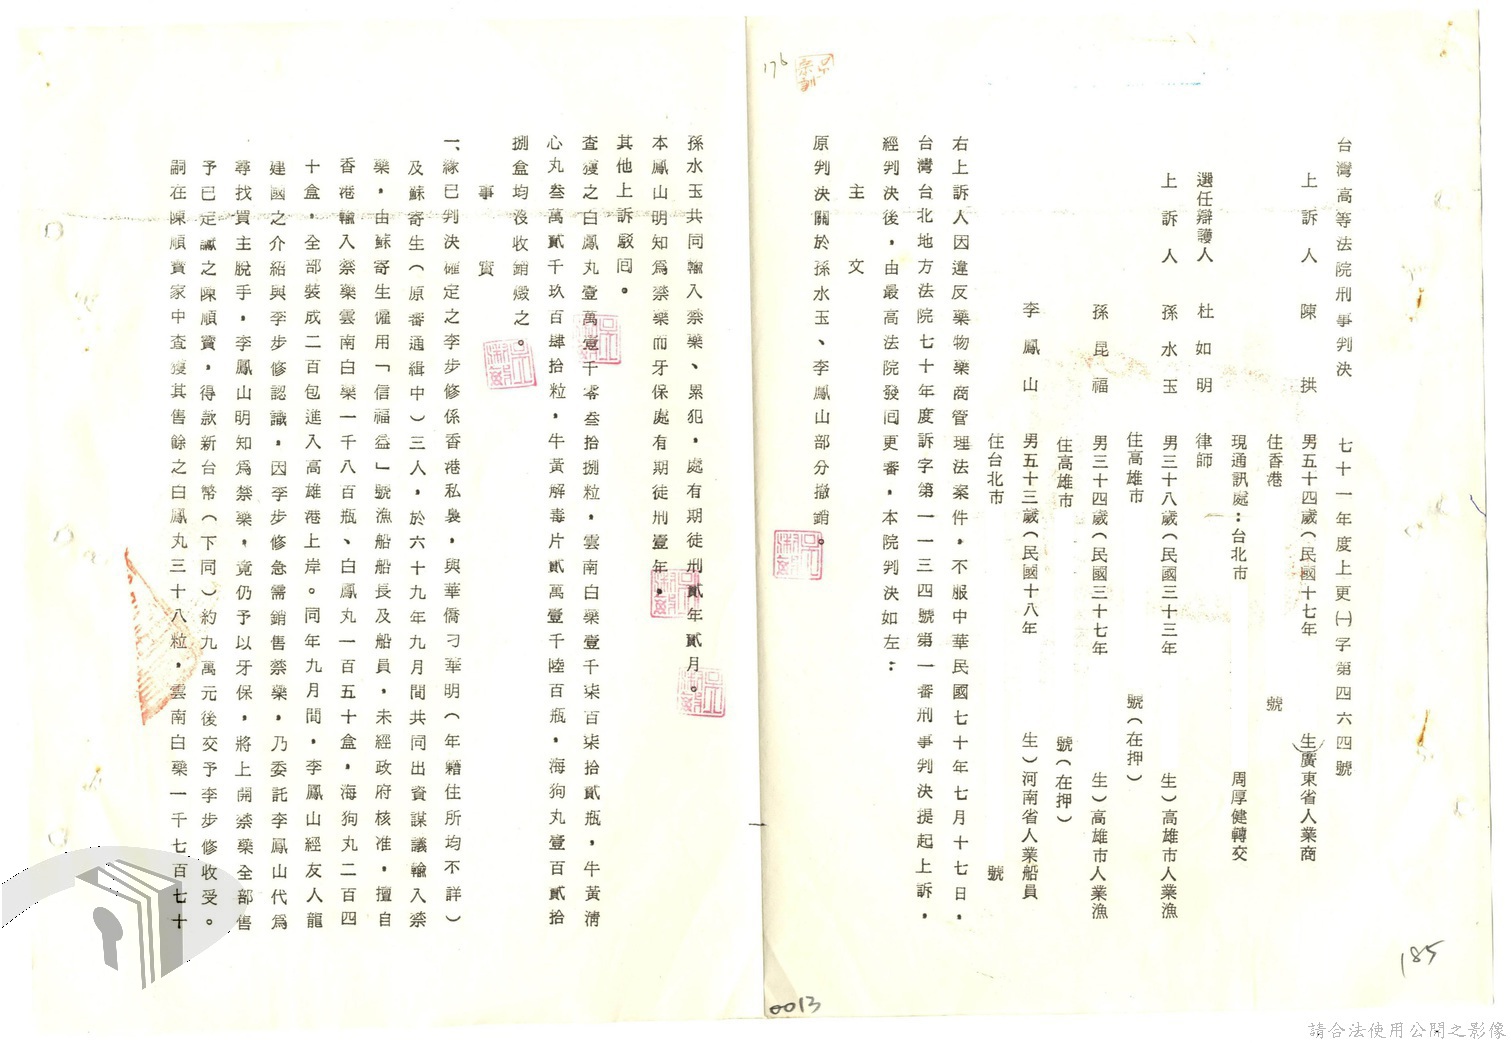 台灣高等法院刑事判決　七十一年度上更㈠字第四六四號
上訴人　陳　拱　男五十四歲（民國十七年　生）廣東省人業商
住香港　號
現通訊處：台北市　周厚健轉交
選任辯護人　杜如明　律師
上訴人　孫水玉　男三十八歲（民國三十三年　生）高雄市人業漁
住高雄市　號（在押）
孫昆福　男三十四歲（民國三十七年　生）高雄市人業漁
住高雄市　號（在押）
李鳳山　男五十三歲（民國十八年　生）河南省人業船員
住台北市　號
右上訴人因違反藥物藥商管理法案件，不服中華民國七十年七月十七日，
台灣台北地方法院七十年度訴字第一一三四號第一審刑事判決提起上訴，
經判決後，由最高法院發回更審，本院判決如左：
主　文
原判決關於孫水玉、李鳳山部分撤銷。
孫水玉共同輸入禁藥、累犯，處有期徒刑貳年貳月。
本鳳山明知為禁藥而牙保處有期徒刑壹年，
其他上訴駁回。
查獲之白鳳丸壹萬壹千零叁拾捌粒，雲南白藥壹千柒百柒拾貳瓶，牛黃清
心丸叁萬貳千玖百肆拾粒，牛黃解毒片貳萬壹千陸百瓶，海狗丸壹百貳拾
捌盒均沒收銷燬之。
事　實
一、緣已判決確定之李步修係香港私梟，與華僑刁華明（年籍住所均不詳）
及蘇寄生（原審通緝中）三人，於六十九年九月間共同出資謀議輸入禁
藥，由蘇寄生僱用「信福益」號漁船船長及船員，未經政府核准，擅自
香港輸入禁藥雲南白藥一千八百瓶、白鳳丸一百五十盒，海狗丸二百四
十盒，全部裝成二百包進入高雄港上岸。同年九月間，李鳳山經友人龍
建國之介紹與李步修認識，因李步修急需銷售禁藥，乃委託李鳳山代為
尋找買主脫手，李鳳山明知為禁藥，竟仍予以牙保，將上開禁藥全部售
予已定讞之陳順寶，得款新台幣（下同）約九萬元後交予李步修收受。
嗣在陳順寶家中查獲其售餘之白鳳丸三十八粒，雲南白藥一千七百七十
176
185
0013
請合法使用公開之影像